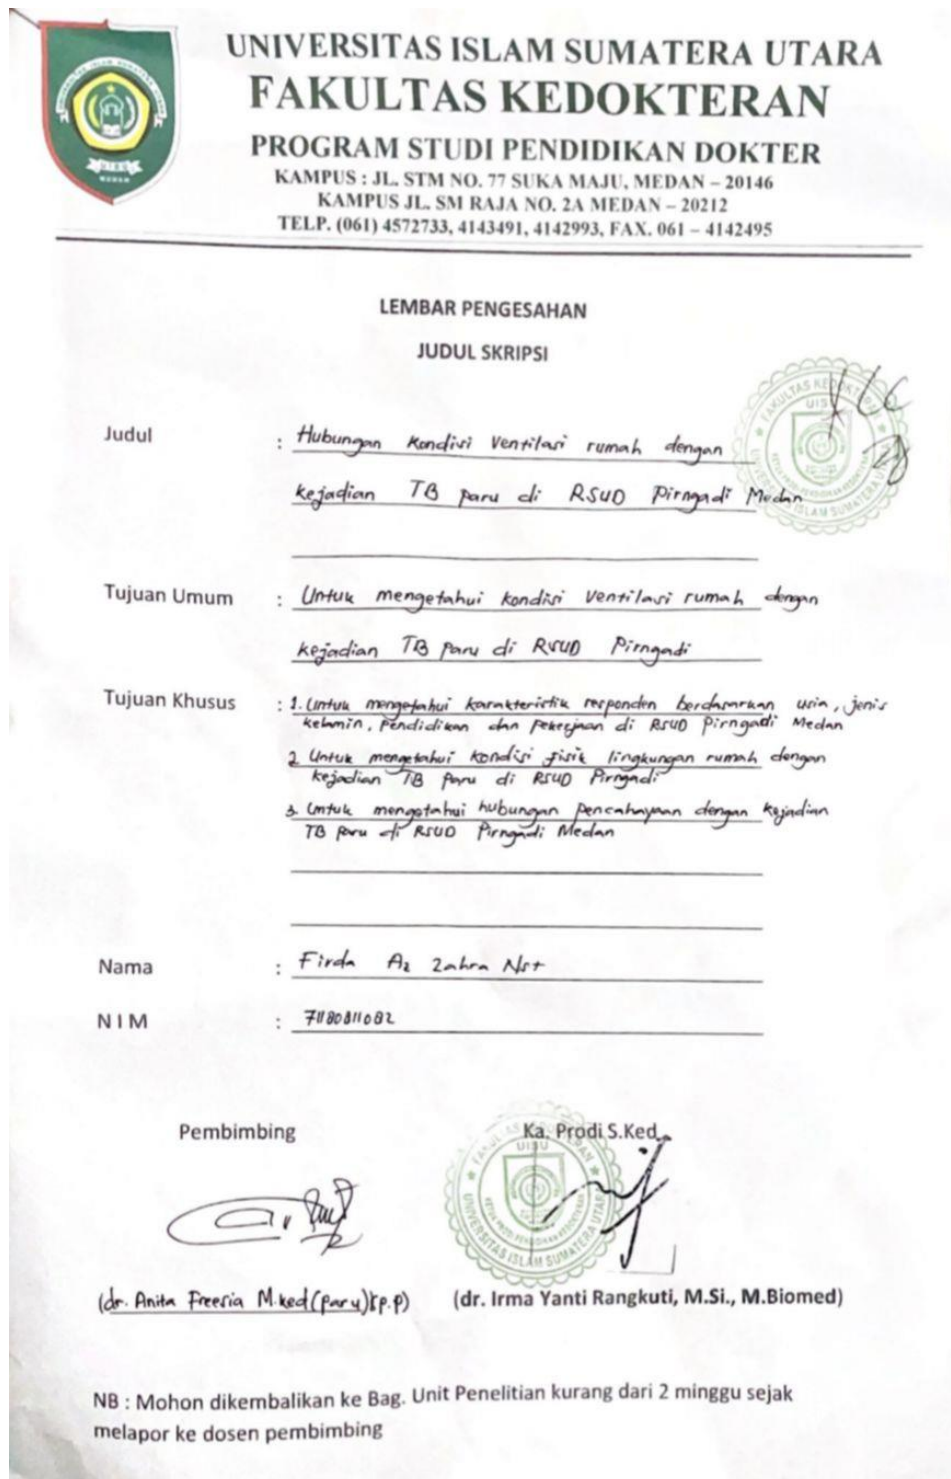 UNIVERSITAS ISLAM SUMATERA UTARA
FAKULTAS KEDOKTERAN
PROGRAM STUDI PENDIDIKAN DOKTER
KAMPUS : JL. STM NO. 77 SUKA MAJU, MEDAN – 20146
KAMPUS JL. SM RAJA NO. 2A MEDAN – 20212
TELP. (061) 4572733, 4143491, 4142993, FAX. 061 – 4142495
LEMBAR PENGESAHAN
JUDUL SKRIPSI
Judul : Hubungan Kondisi Ventilasi rumah dengan
kejadian TB paru di RSUD Pirngadi Medan
Tujuan Umum : Untuk mengetahui kondisi Ventilasi rumah dengan
kejadian TB paru di RSUD Pirngadi
Tujuan Khusus : 1. Untuk mengetahui karakteristik responden berdasarkan usia, jenis
kelamin, Pendidikan dan Pekerjaan di RSUD Pirngadi Medan
2 Untuk mengetahui kondisi fisik lingkungan rumah dengan
kejadian TB paru di RSUD Pirngadi
3. Untuk mengetahui hubungan pencahayaan dengan kejadian
TB paru di RSUD Pirngadi Medan
Nama : Firda Az Zahra Nst
NIM : 71180811082
Pembimbing Ka. Prodi S.Ked
(dr. Anita Freesia M.ked(paru)Sp.P) (dr. Irma Yanti Rangkuti, M.Si., M.Biomed)
NB : Mohon dikembalikan ke Bag. Unit Penelitian kurang dari 2 minggu sejak
melapor ke dosen pembimbing